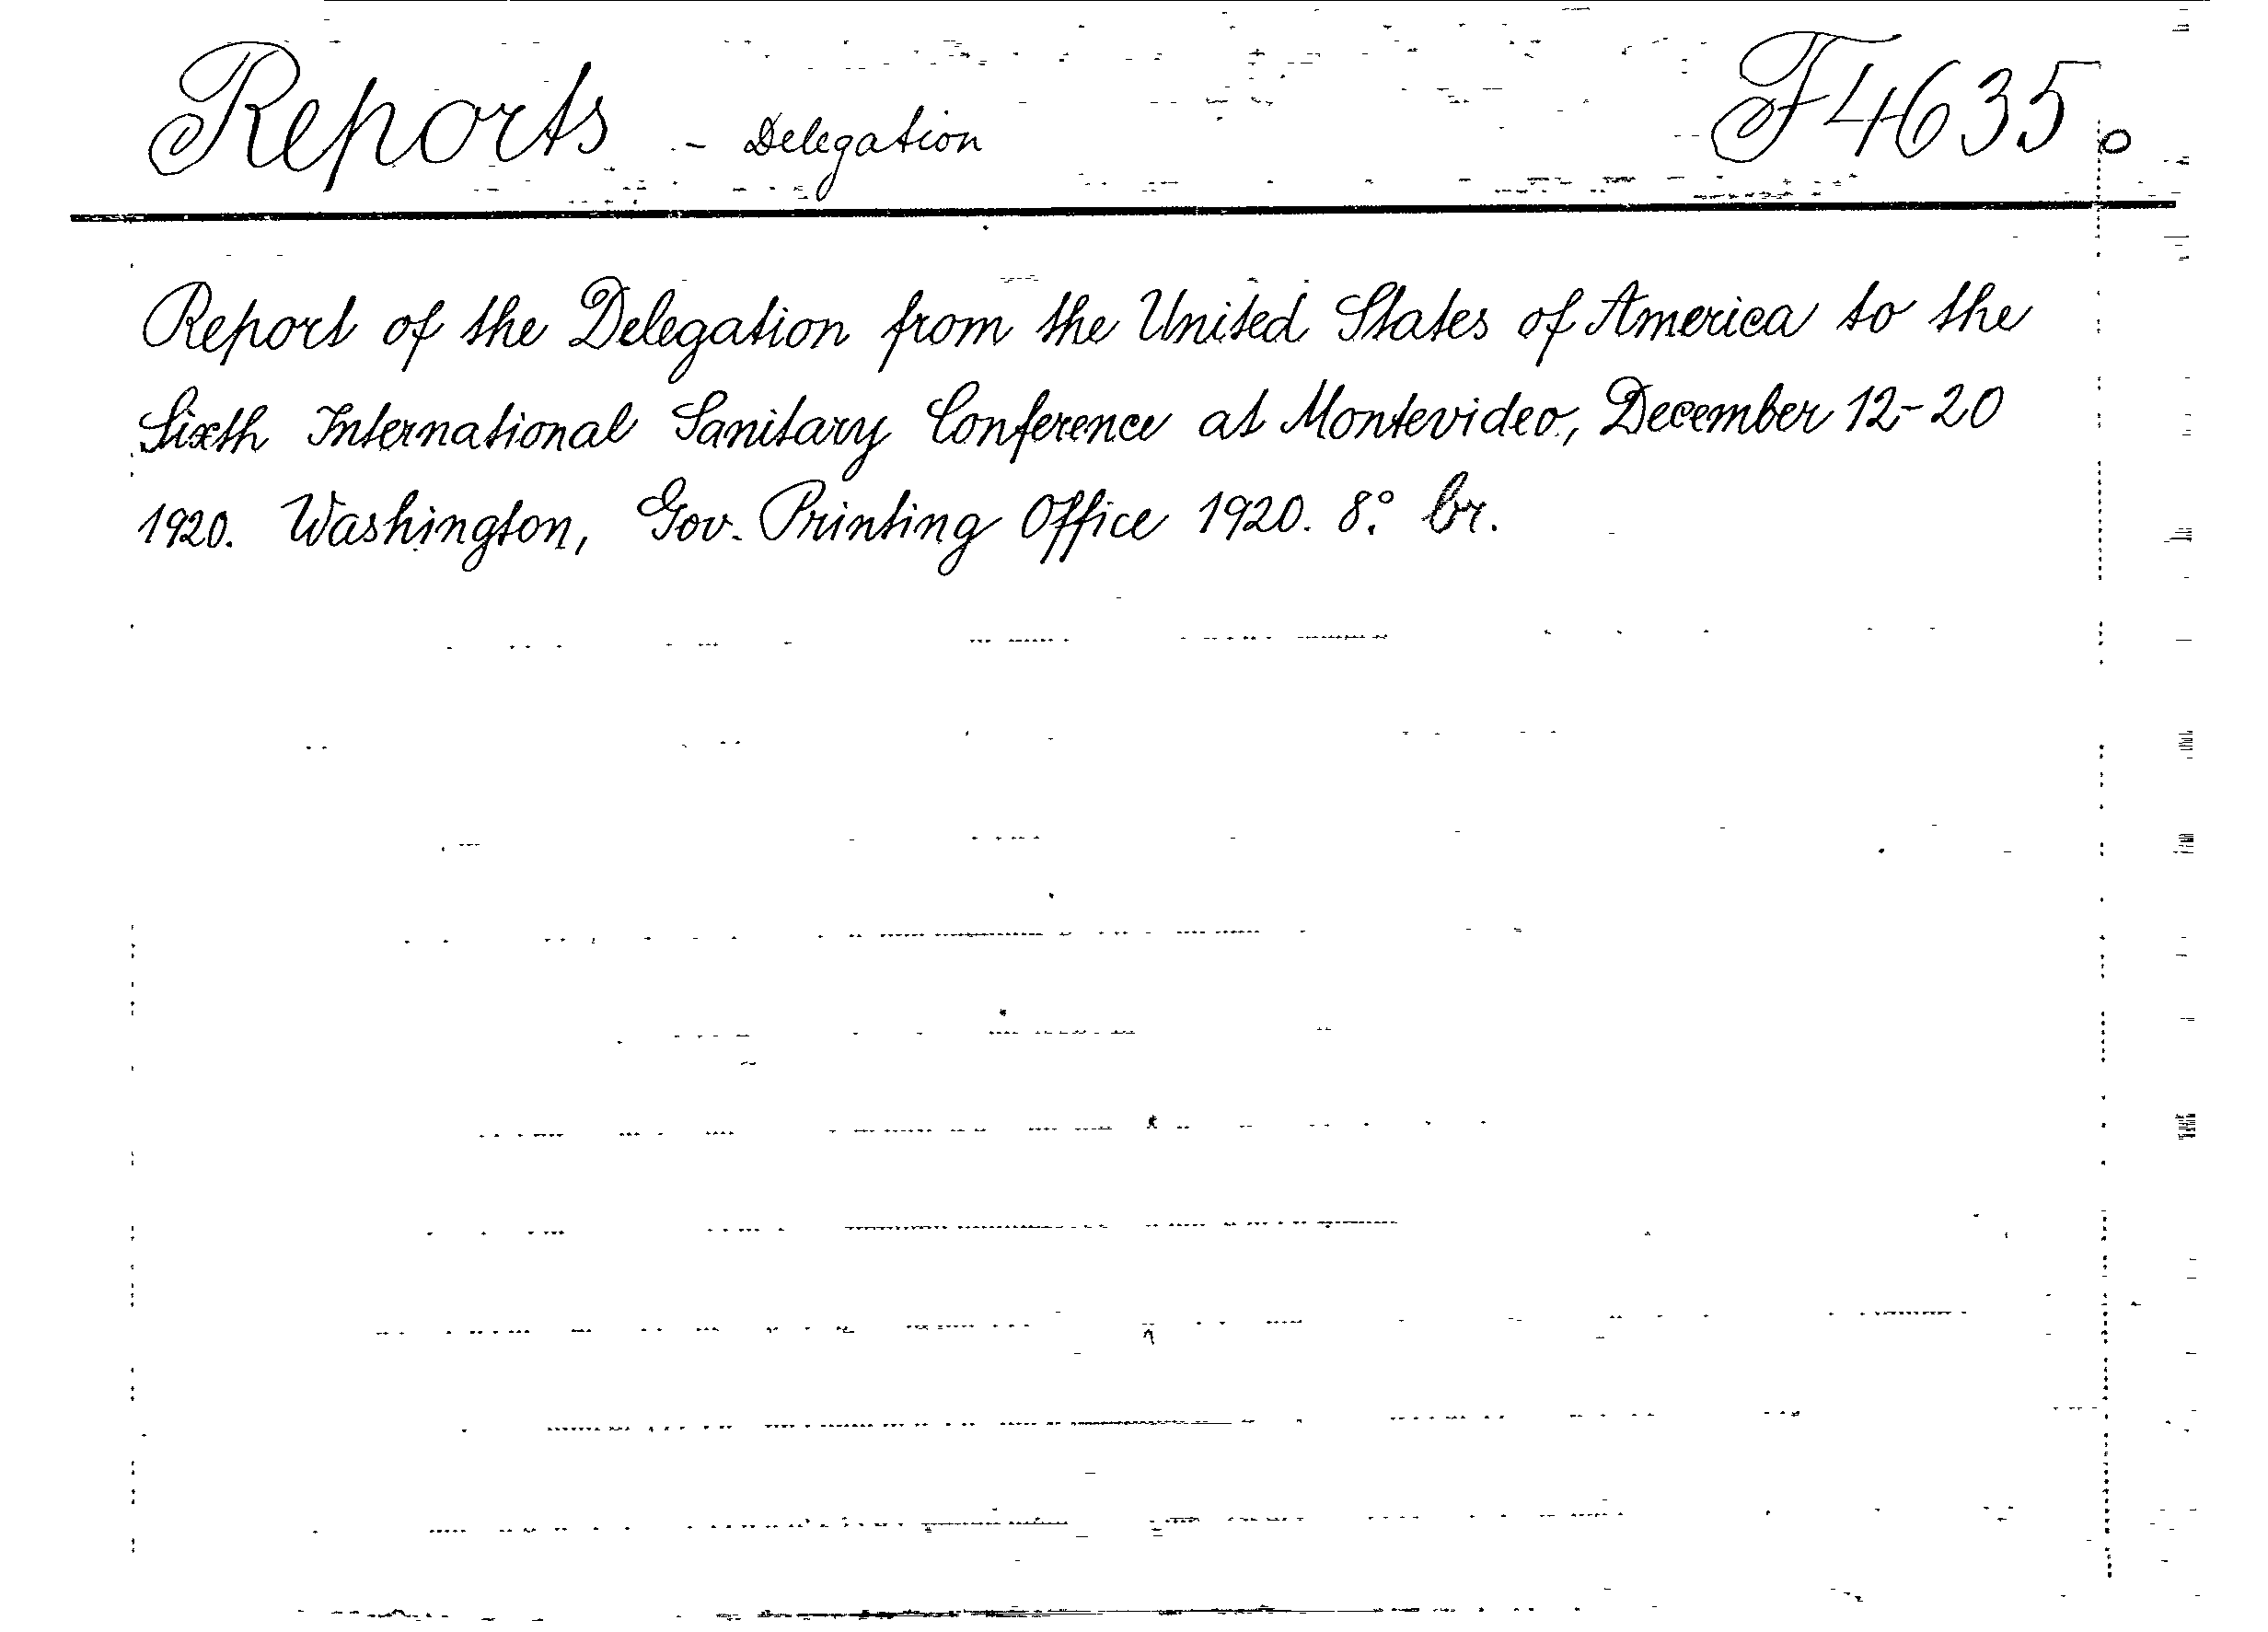 Reports - Delegation F4635.
Report of the Delegation from the United States of America to the
Sixth International Sanitary Conference at Montevideo, December 12-20
1920. Washington, Gov. Printing Office 1920. 8.° br.